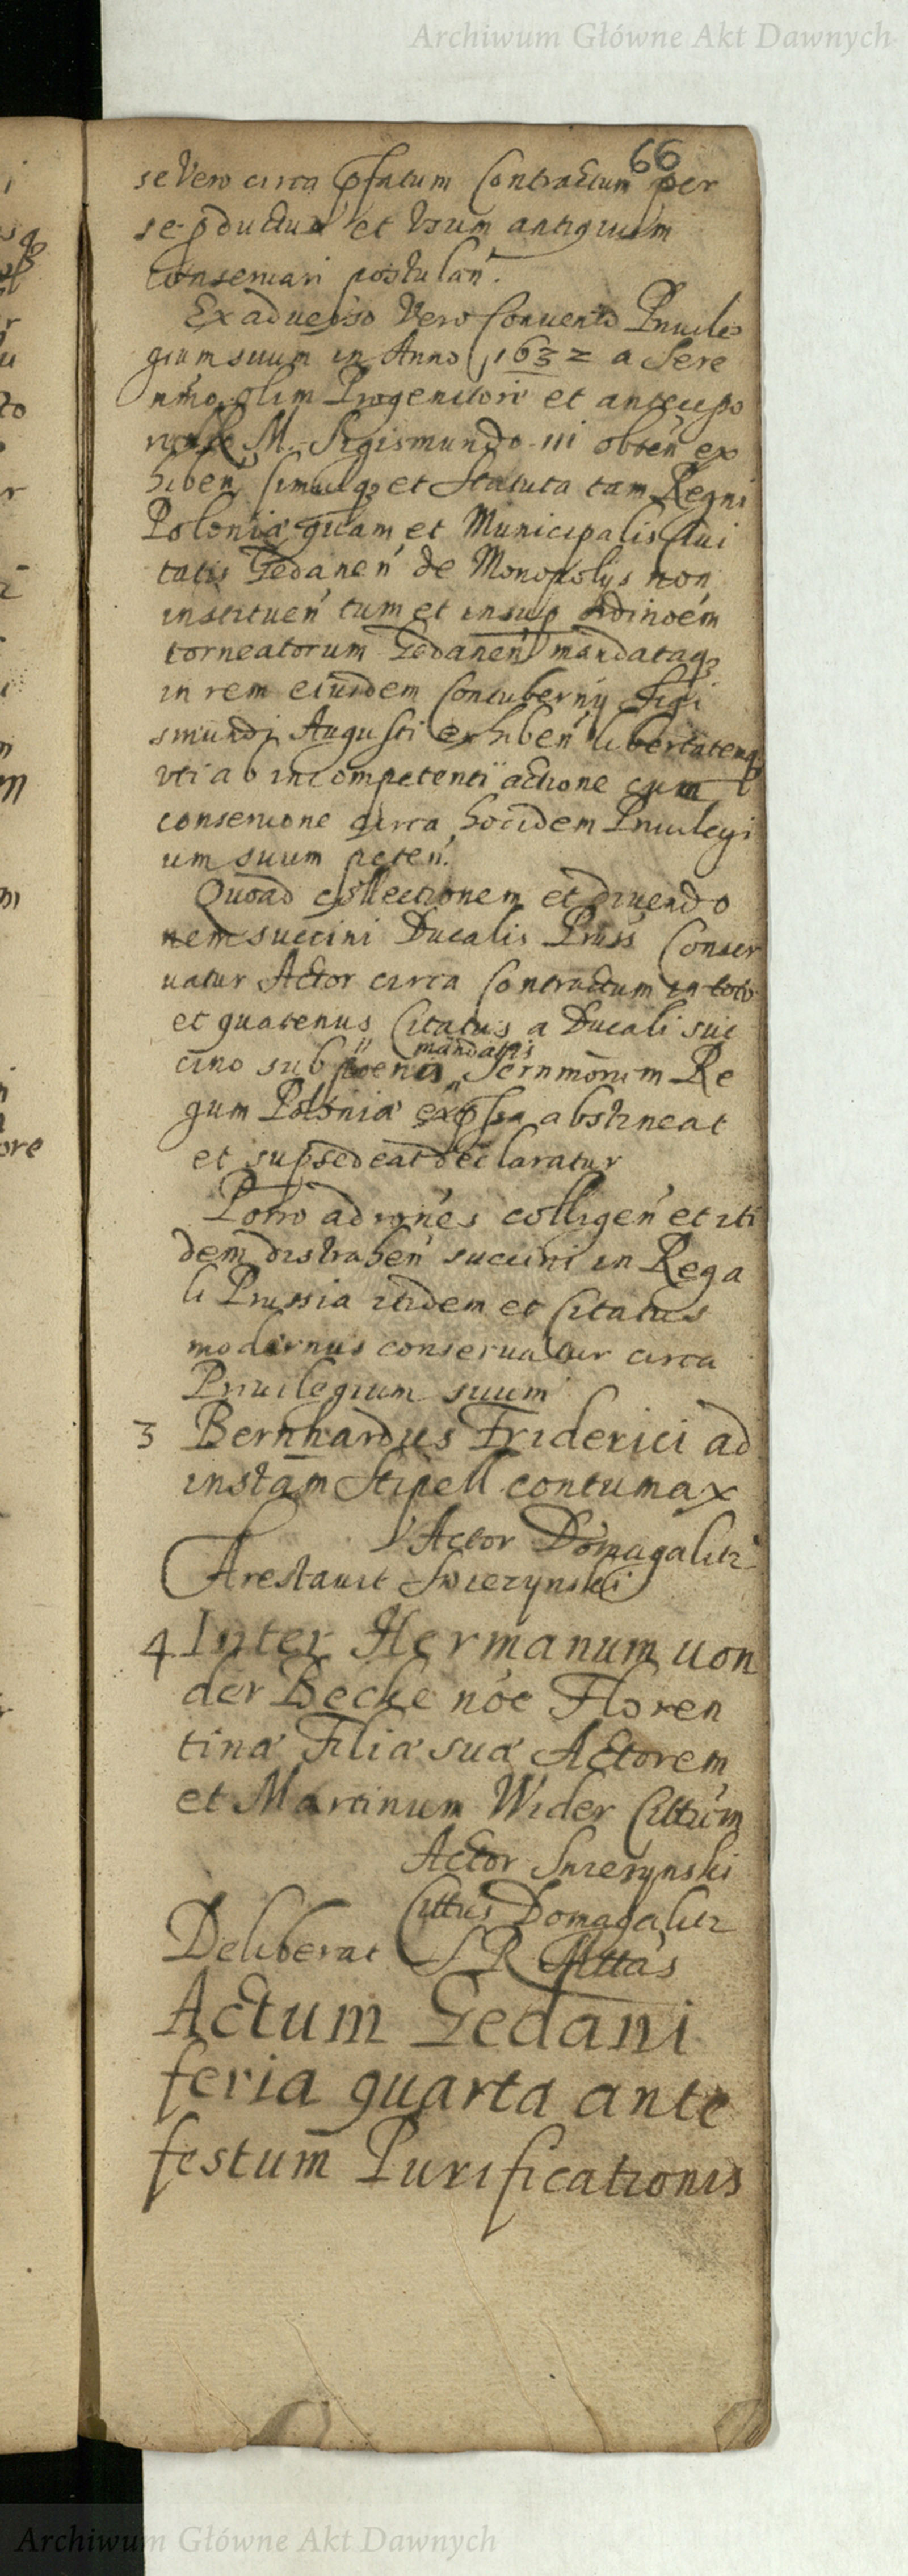 Archiwum Główne Akt Dawnych
66
se vero circa pfatum Contractum per
se pductum et Vsum antiquum
conseruari postulan.
Ex aduerso Vero Conuento Priuile
gium suum in Anno 1632 a Sere
nmo olim Progenitori et anteces
M. Sigismundo III obten ex
hiben simulq et Statuta tam Regni
Poloniæ quam et Municipalis Ciui
tatis Gedanen de Monopolijs non
instituen tum et insup ordinoem
torneatorum Gedanen mandataq
in rem eiusdem Contubernij Sigi
smundi Augusti exhiben libertatemq
vti ab incompetenti actione cum
conseruone circa hocidem Priuilegi
um suum peten.
Quoad collectionem et diuendo
nem succini Ducalis Pruss Conser
uatur Actor circa Contractum in toto
et quatenus Citatus a Ducali suc
mandatis
cino sub poenis Sernmorum Re
gum Poloniæ expssa abstineat
et supsedeat declaratur
Porro ad rones colligen et iti
dem distrahen succini in Rega
li Prussia itidem et Citatus
modernus conseruatur circa
Priuilegium suum
3 Bernhardus Friderici ad
instam Stipell contumax
Actor Domagalicz
Arestauit Swierzynski
4 Inter Hermanum uon
der Becke noe Floren
tinæ Filiæ suæ Actorem
et Martinum Wider Cittum
Actor Swierzynski
Cittus Domagalicz
Deliberat S R Mttas
Actum Gedani
feria quarta ante
festum Purificationis
Archiwum Główne Akt Dawnych